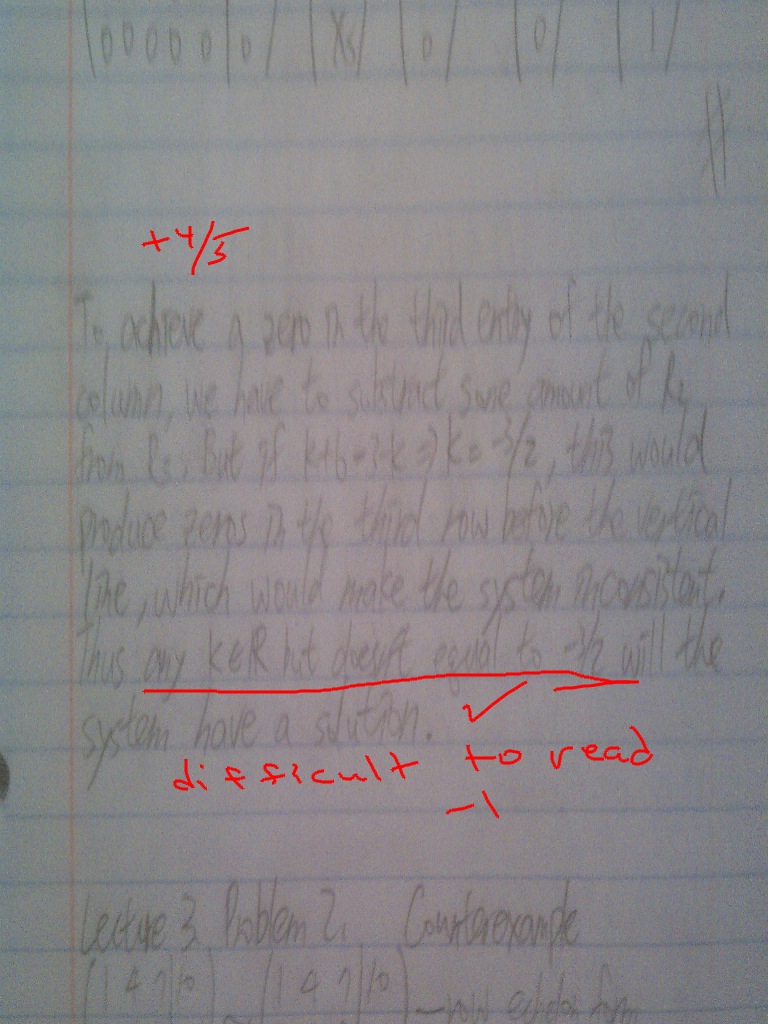 (0 0 0 0 0 | 0) (X5) (0) (0) (1)
+4/5
To achieve a zero in the third entry of the second
column, we have to substract some amount of R2
from R3. But if k+6=3-k => k=-3/2, this would
produce zeros in the third row before the vertical
line, which would make the system inconsistent.
Thus any k∈R but doesn't equal to -3/2 will the
system have a solution.
difficult to read
-1
Lecture 3 Problem 2. Counterexample
(1 4 7 | 10) ~ (1 4 7 | 10) - row echelon form